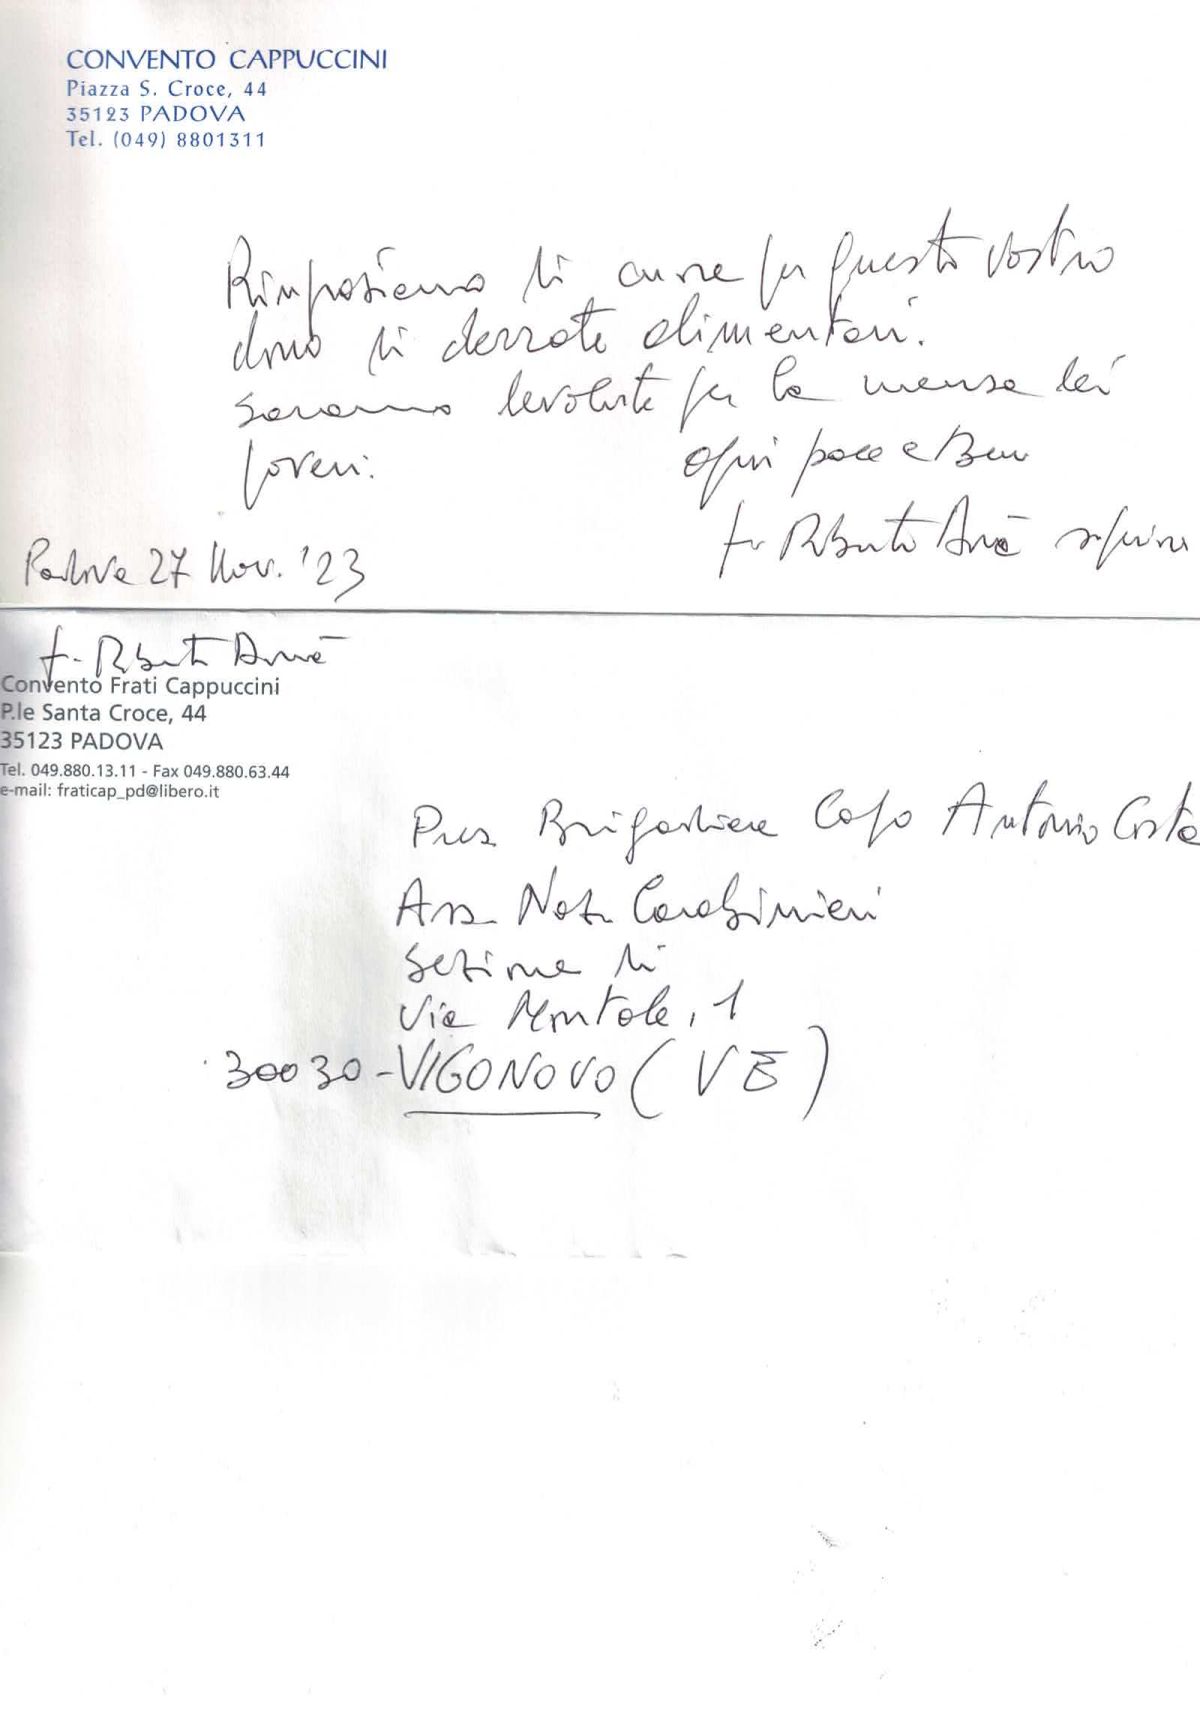 CONVENTO CAPPUCCINI
Piazza S. Croce, 44
35123 PADOVA
Tel. (049) 8801311
Ringraziamo di cuore per questo vostro
dono di derrate alimentari.
Saranno devolute per la mensa dei
poveri.
Ogni pace e Bene
fr Roberto
Padova 27 Nov. '23
f. Roberto
Convento Frati Cappuccini
P.le Santa Croce, 44
35123 PADOVA
Tel. 049.880.13.11 - Fax 049.880.63.44
e-mail: fraticap_pd@libero.it
Pres Brigadiere Capo Antonio Costa
Ass. Naz. Carabinieri
Sezione di
Via Montale, 1
30030-VIGONOVO (VE)